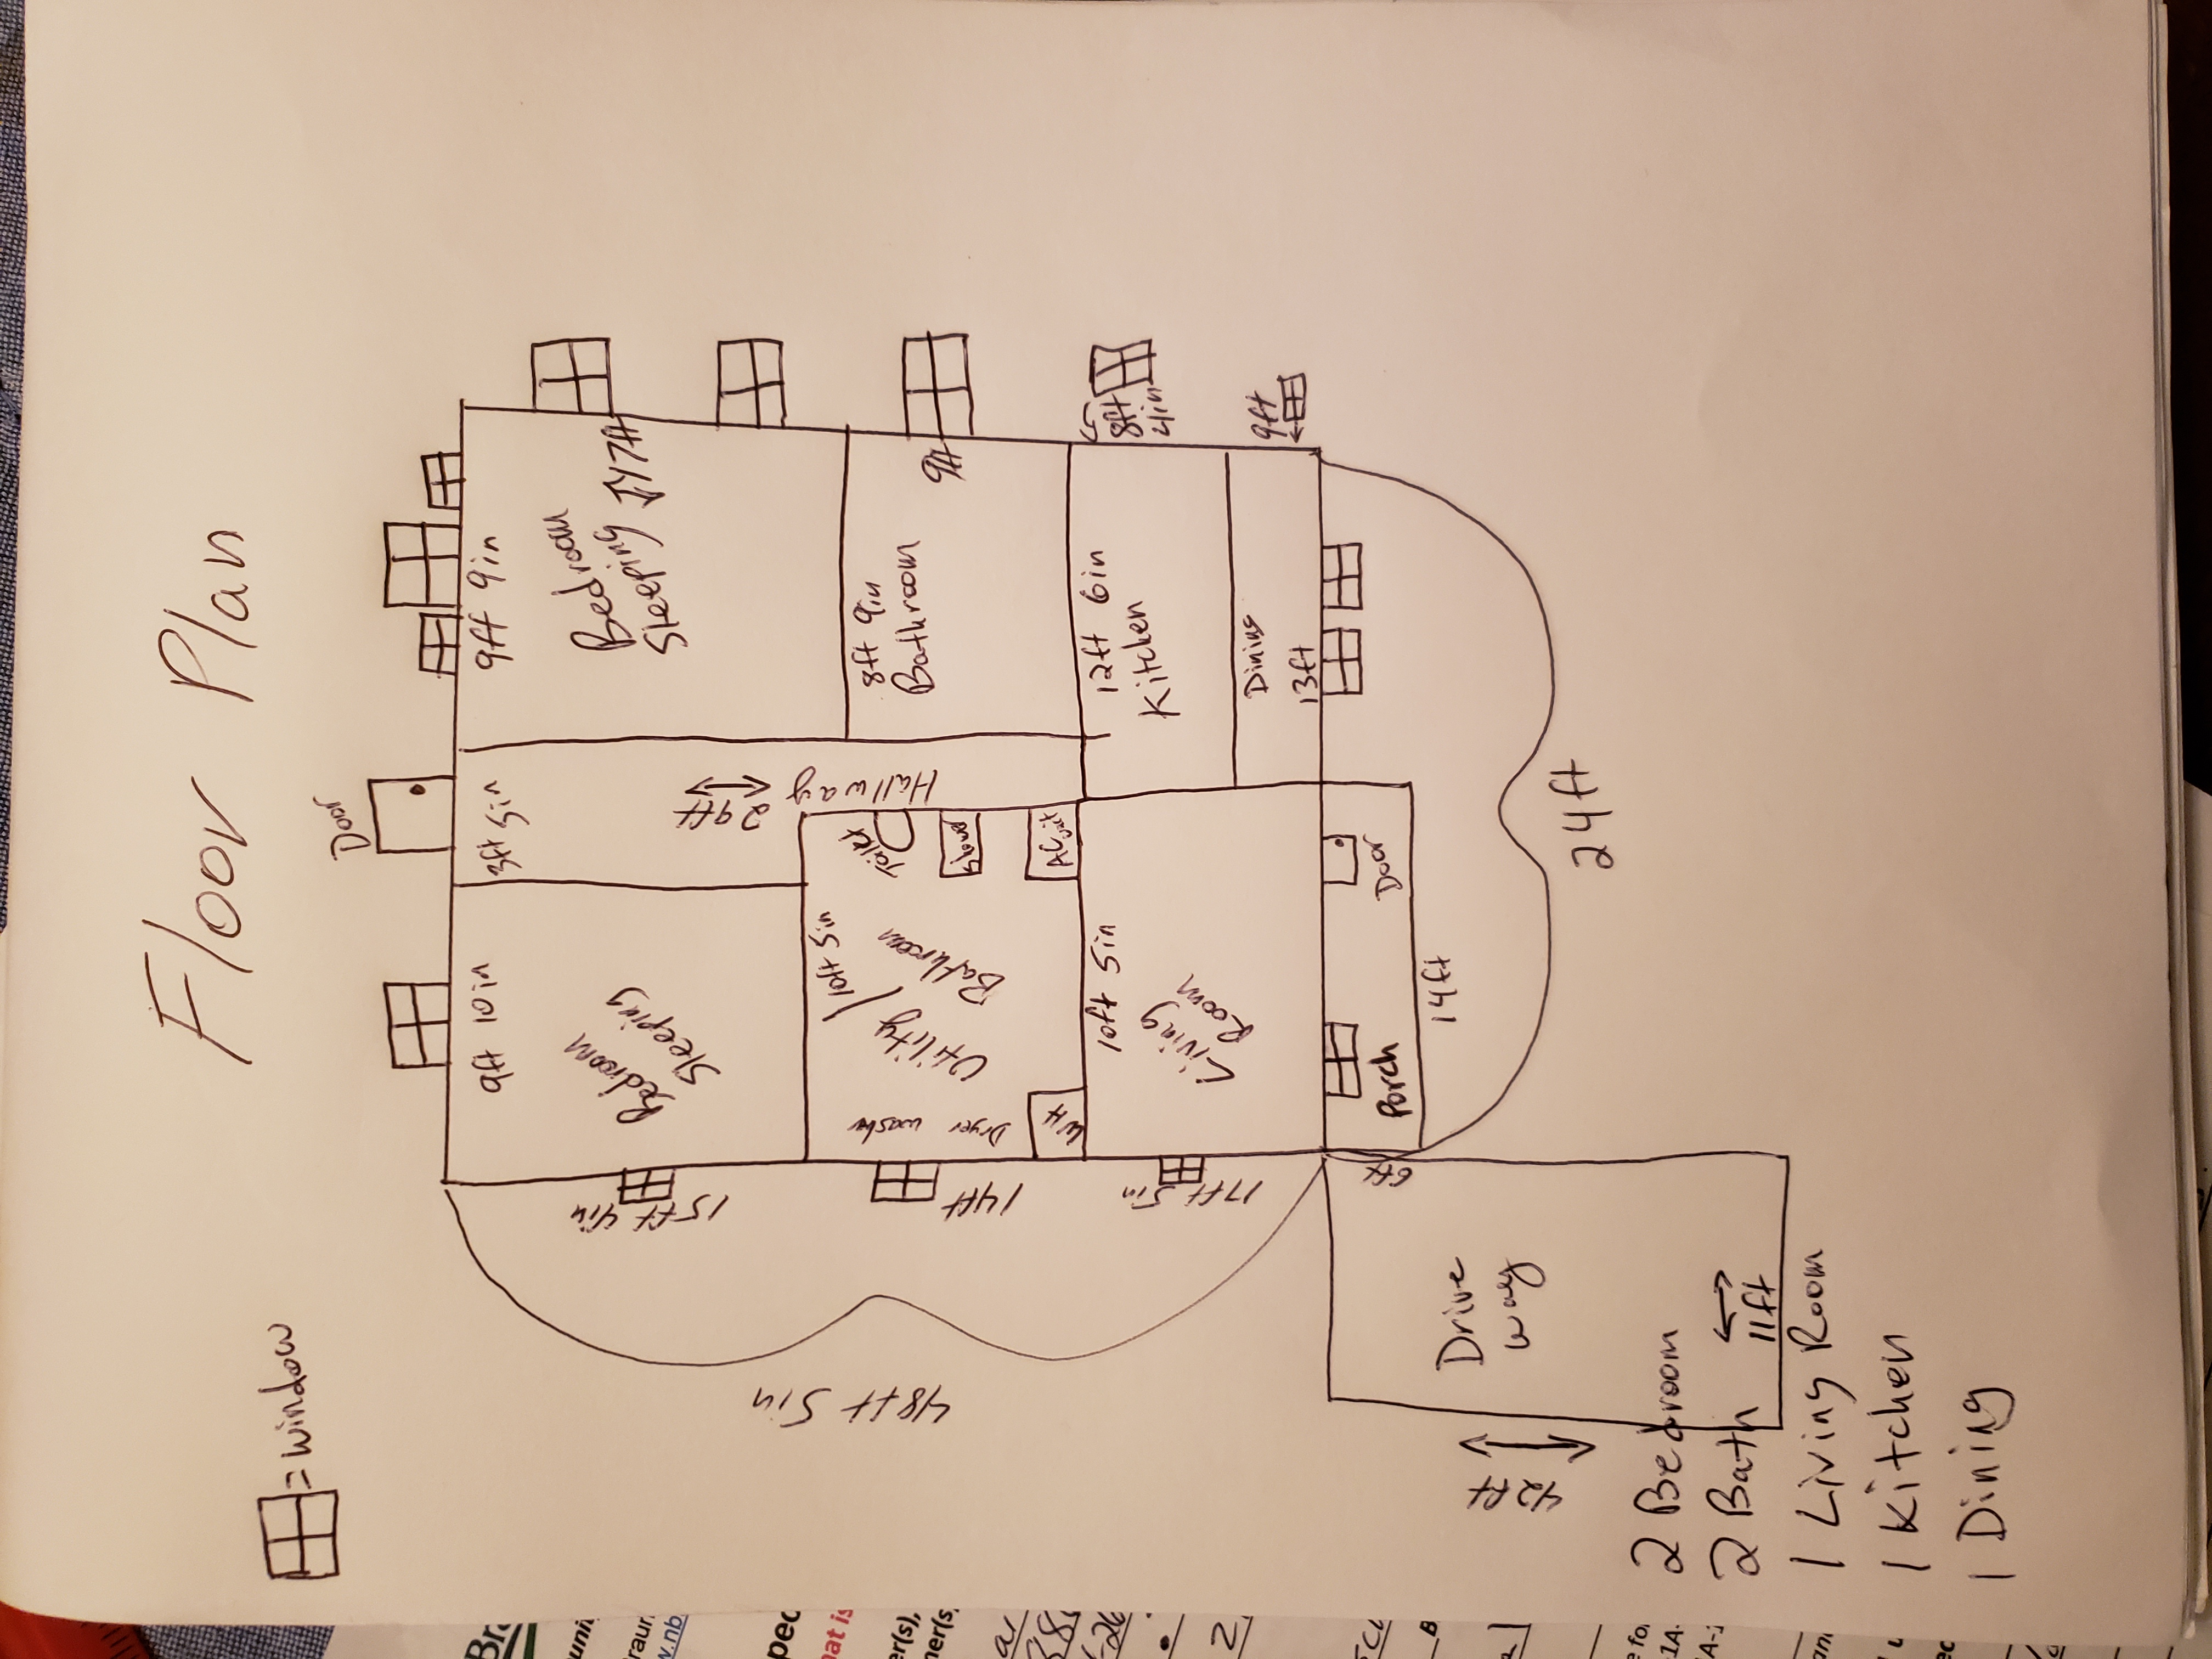 Floor Plan
= Window
Door
9ft 10in
3ft 5in
9ft 9in
Bedroom
Sleeping
Bedroom
Sleeping
17ft
29ft
Hallway
15ft 4in
10ft 5in
Utility/
Bathroom
Toilet
washer
Dryer
WH
AC unit
14ft
8ft 9in
Bathroom
9ft
10ft 5in
Living
Room
17ft 5in
12ft 6in
Kitchen
8ft
4in
Dining
13ft
9ft
Porch
Door
6ft
14ft
24ft
48ft 5in
Drive
way
42
ft
11ft
2 Bedroom
2 Bath
1 Living Room
1 Kitchen
1 Dining